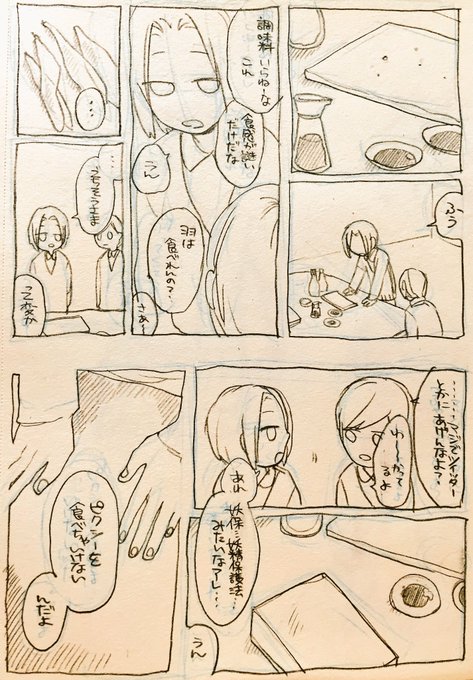 ふう
調味料いらねーな
これ
食感が
だけだな
うん
羽は
食べれんの?
さあ…
…
…
ごちそうさま
………マジでツイッター
とかに
あげんなよ?
わーかって
るよ
あれ
妖保…妖精保護法…
みたいなアレ…
うん
ピクシーを
食べちゃいけない
んだよ